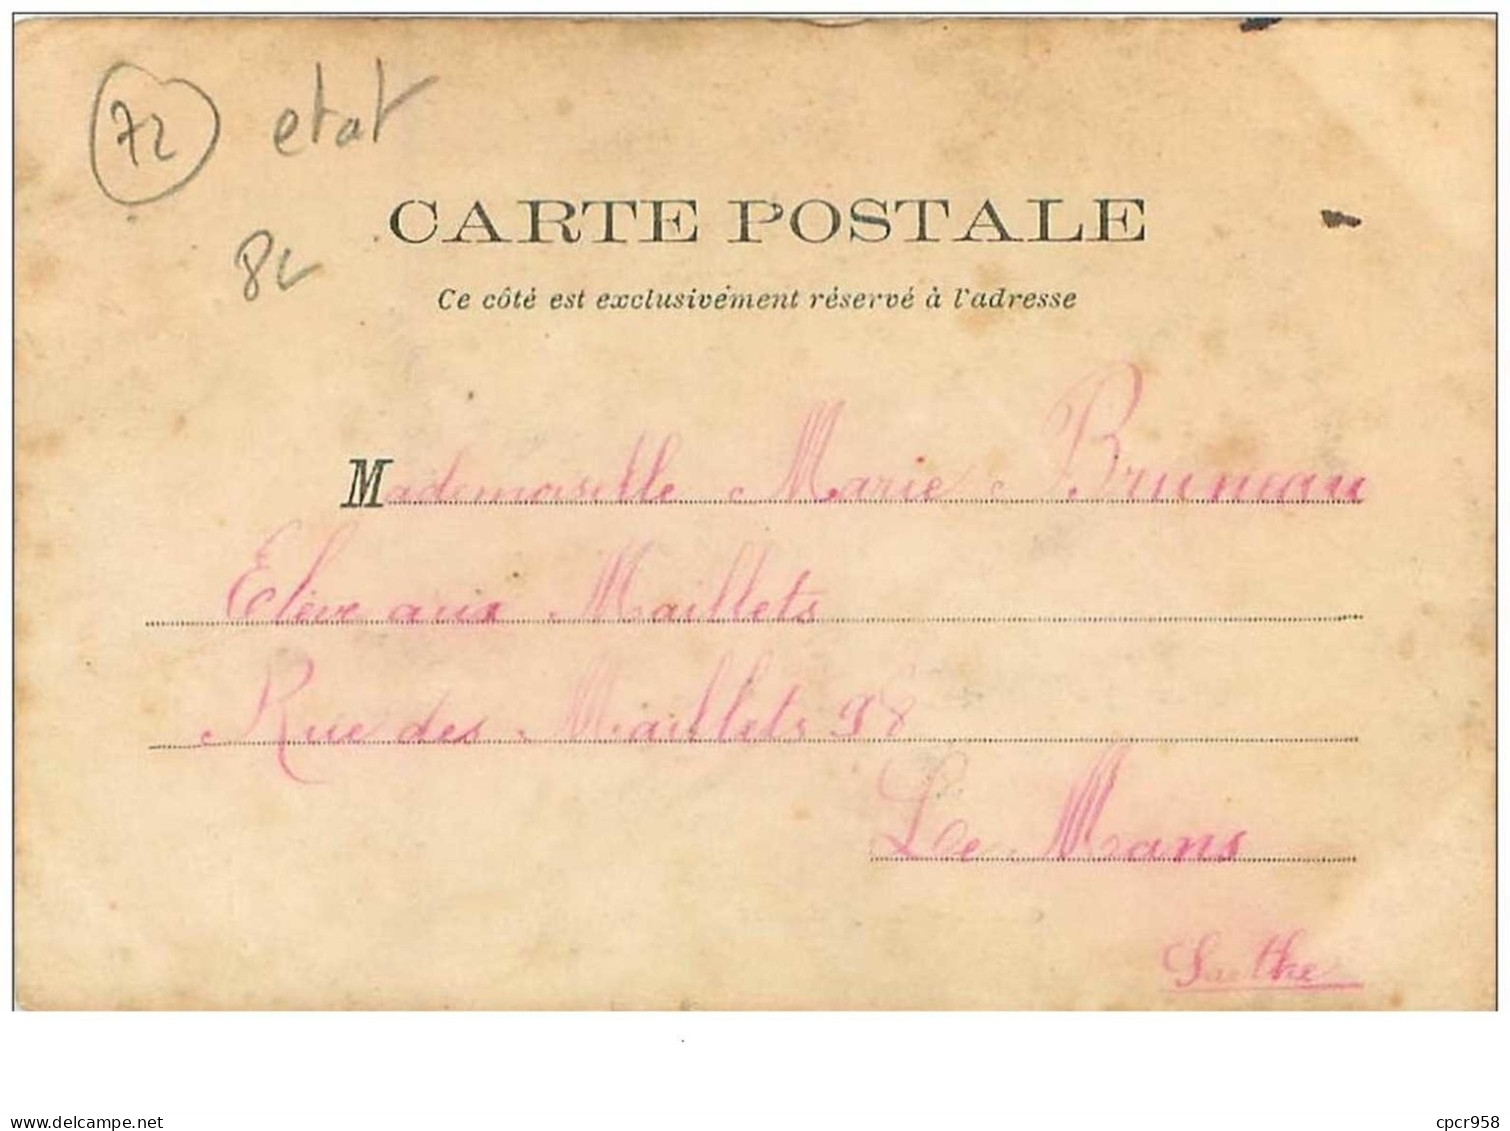 72 etat
CARTE POSTALE
8L
Ce côté est exclusivement réservé à l'adresse
Mademoiselle Marie Bruneau
Elève aux Maillets
Rue des Maillets 98
Le Mans
Sarthe
delcampe.net
cpcr958